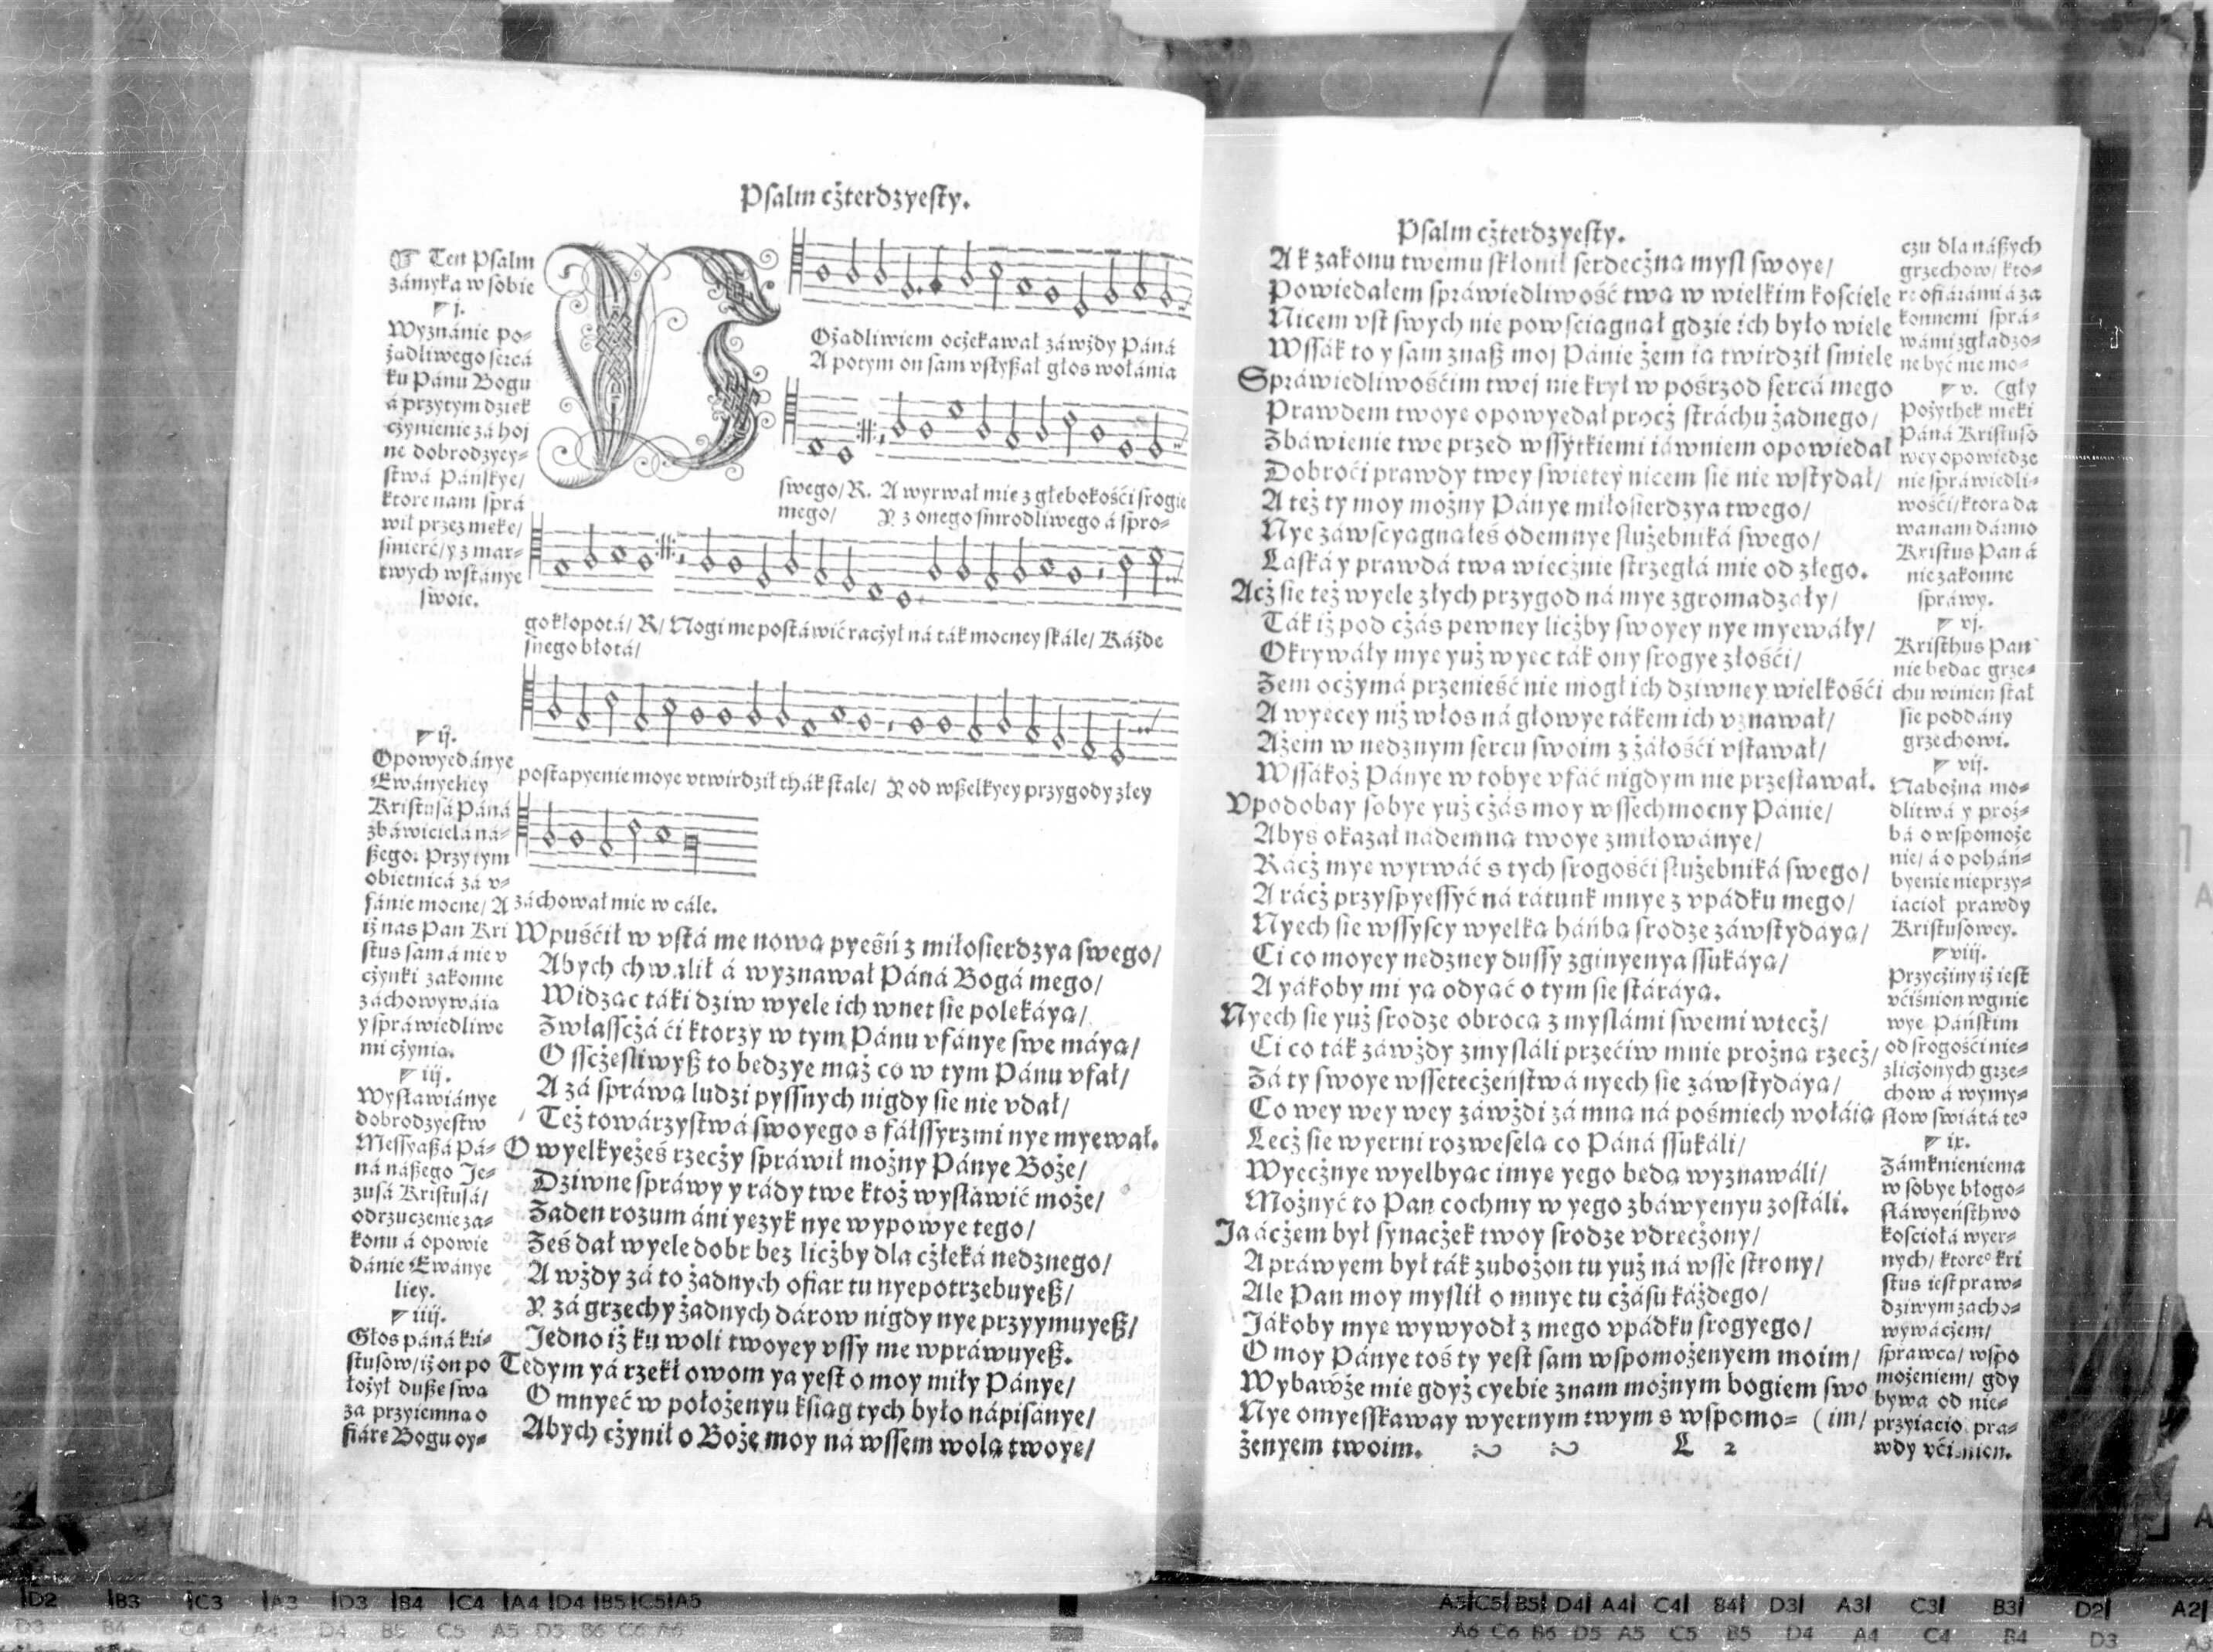 Psalm cżterdzyesty.
Ten Psalm
zámyka w sobie
j.
Wyznánie po⸗
żadliwego sercá
ku Pánu Bogu
á przytym dziek
czynienie zá hoj
ne dobrodzyey⸗
stwá Pánskye/
ktore nam sprá
wil przez meke/
smierć/ y z mar⸗
twych wstánye
swoie.
ij.
Opowyedánye
Ewányeliey
Kristusá Páná
zbáwicielá ná⸗
ßego. Przy tym
obietnicá zá v⸗
fánie mocne/ A
iż nas Pan Kri
stus sam á nie v
cżynki zakonne
záchowywáia
y spráwiedliwe
mi cżynia.
iij.
Wysławiánye
dobrodzyestw
Messyaßá Pá⸗
ná náßego Je⸗
zusá Kristusá/
odrzuczenie za⸗
konu á opowie
dánie Ewánye
liey.
iiij.
Głos páná kri⸗
stusow/ iż on po
łożył duße swa
za przyiemna o
fiáre Bogu oy⸗
V
Ożadliwiem ocżekawał záwżdy Páná
A potym on sam vsłyßał głos wołánia
swego/ R. A wyrwał mie z głebokośći srogie
mego/ Y z onego smrodliwego á spro⸗
go kłopotá/ R/ Nogi me postáwić racżył ná ták mocney skále/ Káżde
snego błotá/
postapyenie moye vtwirdził thák stale/ Y od wßelkyey przygody złey
záchował mie w cále.
Wpuśćił w vstá me nowa pyeśń z miłosierdzya swego/
Abych chwalił á wyznawał Páná Bogá mego/
Widzac táki dziw wyele ich wnet sie polekáya/
Zwłasscżá ći ktorzy w tym Pánu vfánye swe máya/
O sscżesliwyß to bedzye maż co w tym Pánu vfał/
A zá spráwa ludzi pyssnych nigdy sie nie vdał/
Też towárzystwá swoyego s fáłssyrzmi nye myewał.
O wyelkyeżeś rzecży spráwił możny Pánye Boże/
Dziwne spráwy y rády twe ktoż wysławić może/
Żaden rozum áni yezyk nye wypowye tego/
Żeś dał wyele dobr bez licżby dla cżłeká nedznego/
A wżdy zá to żadnych ofiar tu nyepotrzebuyeß/
Y zá grzechy żadnych dárow nigdy nye przyymuyeß/
Jedno iż ku woli twoyey vssy me wpráwuyeß.
Tedym yá rzekł owom ya yest o moy miły Pánye/
O mnyeć w położenyu ksiag tych było nápisánye/
Abych cżynił o Boże moy ná wssem wola twoye/
Psalm cżterdzyesty.
A k zakonu twemu skłonił serdecżna mysl swoye/
Powiedałem spráwiedliwość twa w wielkim kosciele
Nicem vst swych nie powsciagnał gdzie ich było wiele
Wssák to y sam znaß moj Pánie żem ia twirdził smiele
Spráwiedliwośćim twej nie krył w pośrzod sercá mego
Prawdem twoye opowyedał procż stráchu żadnego/
Zbáwienie twe przed wssytkiemi iáwniem opowiedał
Dobroći prawdy twey swietey nicem sie nie wstydał/
A też ty moy możny Pánye miłosierdzya twego/
Nye záwscyagnałeś odemnye służebniká swego/
Łaská y prawdá twa wiecżnie strzegłá mie od złego.
Acż sie też wyele złych przygod ná mye zgromadzały/
Ták iż pod cżás pewney licżby swoyey nye myewáły/
Okrywáły mye yuż wyec ták ony srogye złośći/
Żem ocżymá przenieść nie mogł ich dziwney wielkośći
A wyecey niż włos ná głowye tákem ich vznawał/
Ażem w nedznym sercu swoim z żáłośći vstawał/
Wssákoż Pánye w tobye vfáć nigdym nie przestawał.
Vpodobay sobye yuż cżás moy wssechmocny Pánie/
Abys okazał nádemna twoye zmiłowánye/
Rácż mye wyrwáć s tych srogośći służebniká swego/
A rácż przyspyessyć ná rátunk mnye z vpádku mego/
Nyech sie wssyscy wyelka háńba srodze záwstydáya/
Ci co moyey nedzney dussy zginyenya ssukáya/
A yákoby mi ya odyać o tym sie stáráya.
Nyech sie yuż srodze obroca z myslámi swemi wtecż/
Ci co ták záwżdy zmysláli przećiw mnie prożna rzecż/
Zá ty swoye wssetecżeństwá nyech sie záwstydáya/
Co wey wey wey záwżdi zá mna ná pośmiech wołáia
Lecż sie wyerni rozwesela co Páná ssukáli/
Wyecżnye wyelbyac imye yego beda wyznawáli/
Możnyć to Pan cochmy w yego zbáwyenyu zostáli.
Ja ácżem był synacżek twoy srodze vdrecżony/
A práwyem był ták zubożon tu yuż ná wsse strony/
Ale Pan moy myslił o mnye tu cżásu káżdego/
Jákoby mye wywyodł z mego vpádku srogyego/
O moy Pánye toś ty yest sam wspomożenyem moim/
Wybáwże mie gdyż cyebie znam możnym bogiem swo
Nye omyesskaway wyernym twym s wspomo⸗ (im/
żenyem twoim. L 2
czu dla náßych
grzechow/ kto⸗
re ofiárámi á za
konnemi sprá⸗
wámi zgładzo⸗
ne być nie mo⸗
v. (gły
Pożythek meki
Páná Kristuso
wey opowiedze
nie spráwiedli⸗
wośći/ ktora da
wa nam dármo
Kristus Pan á
nie zakonne
spráwy.
vj.
Kristhus Pan
nie bedac grze⸗
chu winien stał
sie poddány
grzechowi.
vij.
Nabożna mo⸗
dlitwá y proż⸗
bá o wspomoże
nie/ á o poháń⸗
byenie nieprzy⸗
iacioł prawdy
Kristusowey.
viij.
Przycżiny iż iest
vćiśnion w gnie
wye Páńskim
od srogośći nie⸗
zlicżonych grze⸗
chow á wymy⸗
słow swiátá te°
ix.
Zámknieniema
w sobye błogo⸗
słáwyeństhwo
kościołá wyer⸗
nych/ ktore° kri
stus iest praw⸗
dziwym zácho⸗
wywácżem/
sprawca/ wspo
możeniem/ gdy
bywa od nie⸗
przyiacio pra⸗
wdy
D2 B3 C3 A3 D3 B4 C4 A4 D4 B5 C5 A5
A5 C5 B5 D4 A4 C4 B4 D3 A3 C3 B3 D2 A2